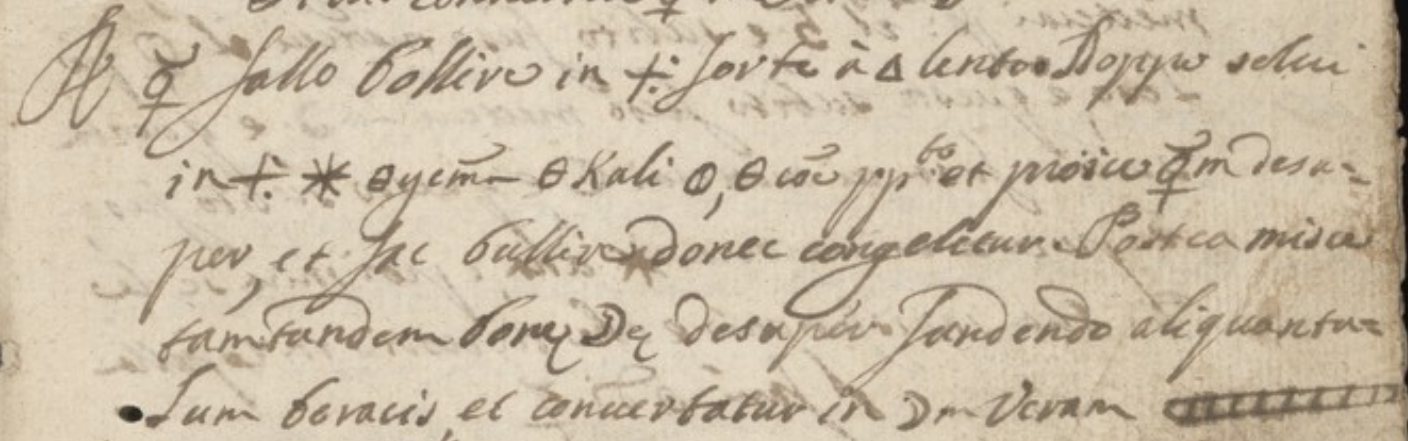 ☿ fallo bollire in +: forte à 🜂 lento Doppo solui
in +: ✱ 🜔 gem̄ 🜔 Kali 🜕, 🜔 cōe pp.to et proiice ☿m desu=
per, et fac bullire donec congeletur. Postea misce
tamtandem bone ☽e desuper fundendo aliquantu=
lum boracis, et conuertatur in ☽m Veram